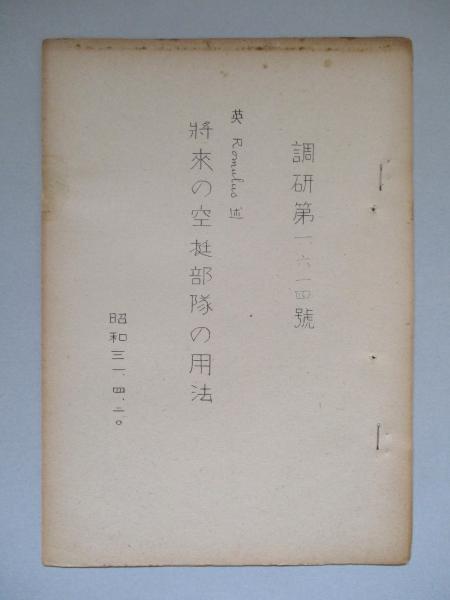 調研第一、六一四號
英 Romulus 述
將來の空挺部隊の用法
昭和三一、四、二〇